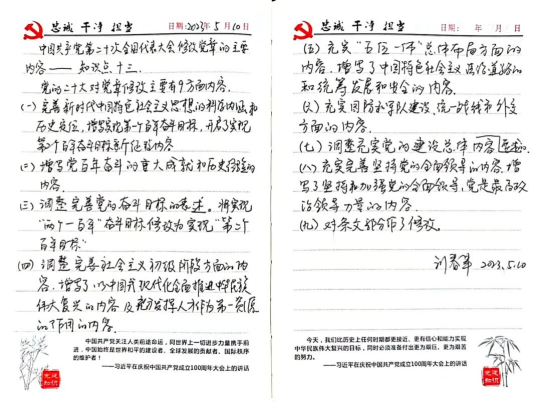 忠诚 干净 担当
日期:2023年5月10
中国共产党第二十次全国代表大会修改党章的主要
内容——知识点十三
党的二十大对党章修改主要有9方面内容。
(一) 完善新时代中国特色社会主义思想的科学内涵和
历史定位,增写实现第一个百年奋斗目标,开启了实现
第二个百年奋斗目标新征程内容
(二) 增写党百年奋斗的重大成就和历史经验的
内容。
(三) 调整完善党的奋斗目标的表述。将实现
“两个一百年”奋斗目标修改为实现“第二个
百年目标”
(四) 调整完善社会主义初级阶段方面的内
容,增写了以中国式现代化全面推进中华民族
伟大复兴的内容及充分发挥人才作为第一资源
的作用的内容.
中国共产党关注人类前途命运,同世界上一切进步力量携手前
进,中国始终是世界和平的建设者、全球发展的贡献者、国际秩序
的维护者!
——习近平在庆祝中国共产党成立100周年大会上的讲话
党建知识
忠诚 干净 担当
日期: 年 月 日
(五) 充实“五位一体”总体布局方面的
内容,增写了中国特色社会主义法治道路的
和统筹发展和安全的内容。
(六) 充实国防和军队建设、统一战线和外交
方面的内容。
(七) 调整充实党的建设总体内容
(八) 充实完善坚持党的全面领导的内容,增
写了坚持和加强党的全面领导,党是最高政
治领导力量的内容。
(九) 对条文部分作了修改。
刘春华 2023.5.10
今天,我们比历史上任何时期都更接近、更有信心和能力实现
中华民族伟大复兴的目标,同时必须准备付出更为艰巨、更为艰苦
的努力。
——习近平在庆祝中国共产党成立100周年大会上的讲话
党建知识